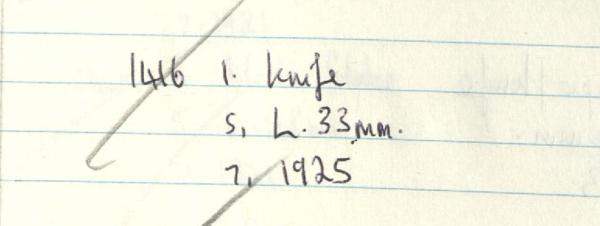 1416 1. knife
5, L. 33mm.
7, 1925